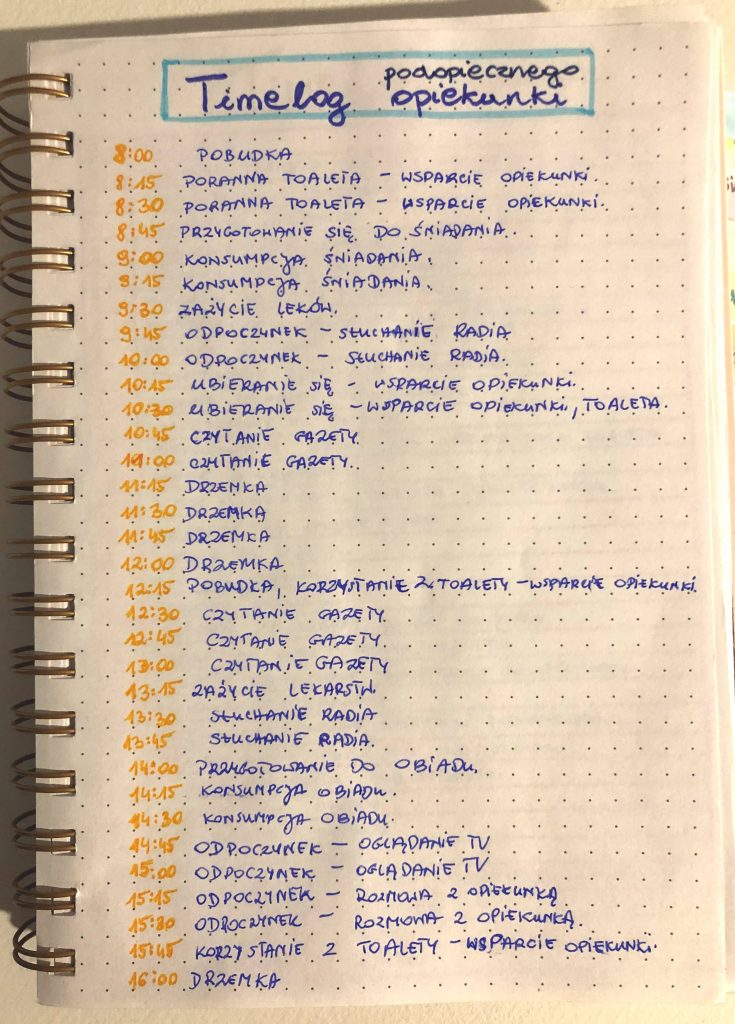 podopiecznego
Timelog opiekunki
8:00 POBUDKA
8:15 PORANNA TOALETA – WSPARCIE OPIEKUNKI.
8:30 PORANNA TOALETA – WSPARCIE OPIEKUNKI.
8:45 PRZYGOTOWANIE SIĘ DO ŚNIADANIA.
9:00 KONSUMPCJA ŚNIADANIA.
9:15 KONSUMPCJA ŚNIADANIA.
9:30 ZAŻYCIE LEKÓW.
9:45 ODPOCZYNEK – SŁUCHANIE RADIA
10:00 ODPOCZYNEK – SŁUCHANIE RADIA.
10:15 UBIERANIE SIĘ – WSPARCIE OPIEKUNKI.
10:30 UBIERANIE SIĘ – WSPARCIE OPIEKUNKI, TOALETA.
10:45 CZYTANIE GAZETY
11:00 CZYTANIE GAZETY.
11:15 DRZEMKA
11:30 DRZEMKA
11:45 DRZEMKA
12:00 DRZEMKA
12:15 POBUDKA, KORZYSTANIE Z TOALETY – WSPARCIE OPIEKUNKI.
12:30 CZYTANIE GAZETY
12:45 CZYTANIE GAZETY
13:00 CZYTANIE GAZETY
13:15 ZAŻYCIE LEKARSTW.
13:30 SŁUCHANIE RADIA
13:45 SŁUCHANIE RADIA.
14:00 PRZYGOTOWANIE DO OBIADU.
14:15 KONSUMPCJA OBIADU.
14:30 KONSUMPCJA OBIADU.
14:45 ODPOCZYNEK – OGLĄDANIE TV
15:00 ODPOCZYNEK – OGLĄDANIE TV
15:15 ODPOCZYNEK – ROZMOWA Z OPIEKUNKĄ
15:30 ODPOCZYNEK – ROZMOWA Z OPIEKUNKĄ.
15:45 KORZYSTANIE Z TOALETY – WSPARCIE OPIEKUNKI.
16:00 DRZEMKA